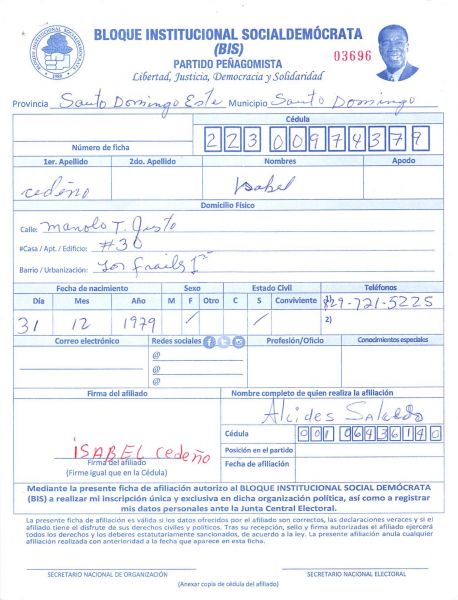 BLOQUE INSTITUCIONAL SOCIALDEMÓCRATA
(BIS)
PARTIDO PEÑAGOMISTA
Libertad, Justicia, Democracia y Solidaridad
03696
Provincia Santo Domingo Este Municipio Santo Domingo
Número de ficha
Cédula
223 0097437 9
1er. Apellido 2do. Apellido Nombres Apodo
cedeño Isabel
Domicilio Físico
Calle: Manolo T. Justo
#Casa / Apt. / Edificio: #30
Barrio / Urbanización: Los Frailes I
Fecha de nacimiento Sexo Estado Civil Teléfonos
Día Mes Año M F Otro C S Conviviente 1) 829-721-5225
31 12 1979 / / 2)
Correo electrónico Redes sociales Profesión/Oficio Conocimientos especiales
@
@
@
Firma del afiliado Nombre completo de quien realiza la afiliación
Alcides Salcedo
Cédula 001 0643614 0
ISABEL cedeño
Firma del afiliado
(Firme igual que en la Cédula)
Posición en el partido
Fecha de afiliación
Mediante la presente ficha de afiliación autorizo al BLOQUE INSTITUCIONAL SOCIAL DEMÓCRATA
(BIS) a realizar mi inscripción única y exclusiva en dicha organización política, así como a registrar
mis datos personales ante la Junta Central Electoral.
La presente ficha de afiliación es válida si los datos ofrecidos por el afiliado son correctos, las declaraciones veraces y si el
afiliado tiene el disfrute de sus derechos civiles y políticos. Tras su recepción, sello y firma autorizadas el afiliado ejercerá
todos los derechos y los deberes estatutariamente sancionados, de acuerdo a la ley. La presente afiliación anula cualquier
afiliación realizada con anterioridad a la fecha que aparece en esta ficha.
SECRETARIO NACIONAL DE ORGANIZACIÓN SECRETARIO NACIONAL ELECTORAL
(Anexar copia de cédula del afiliado)